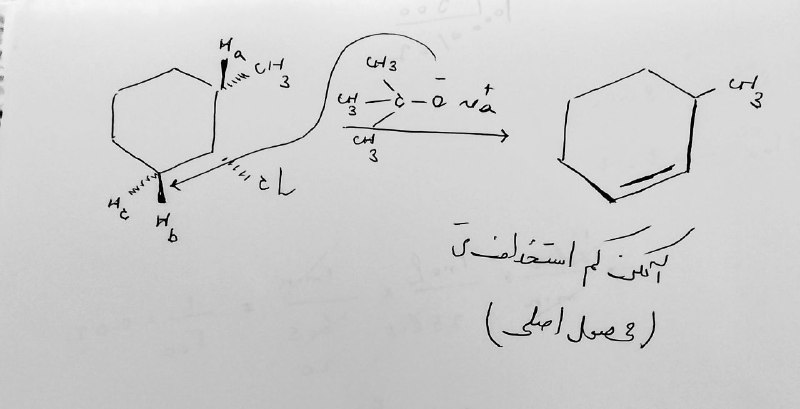 Ha
CH3
CH3
CH3 — C — O⁻ Na⁺
CH3
CL
Hc
Hb
CH3
آلکن کم استخلاف تر
(محصول اصلی)